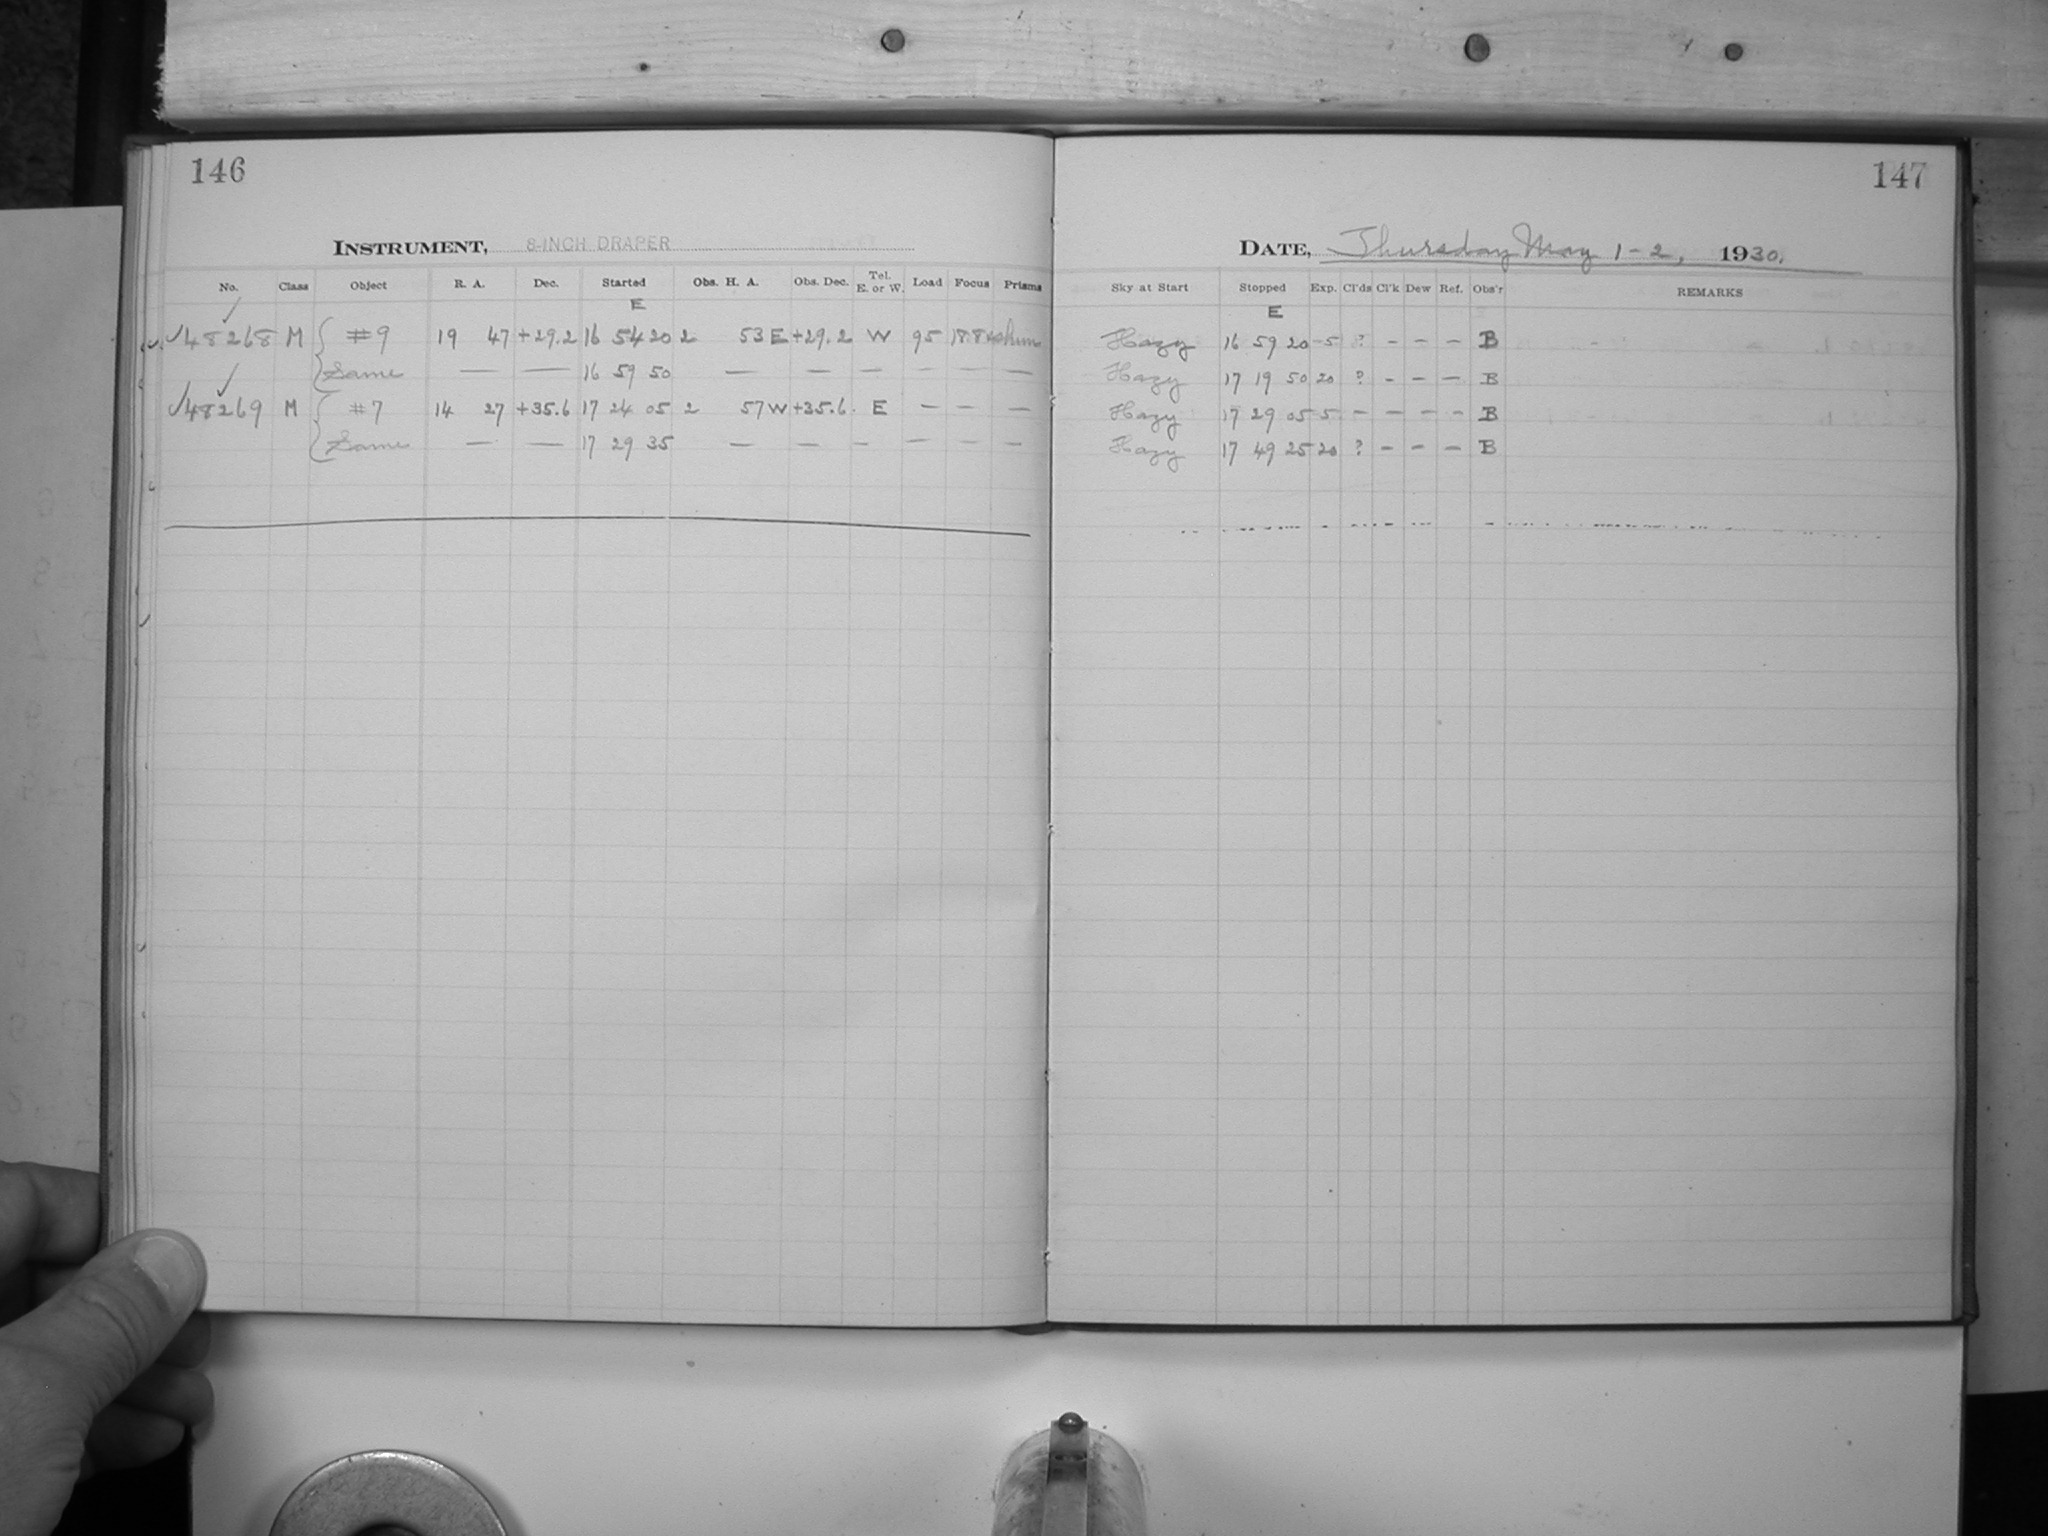 146
INSTRUMENT, 8-INCH DRAPER
No. Class Object R. A. Dec. Started Obs. H. A. Obs. Dec. Tel. E. or W. Load Focus Prisms
E
48268 M #9 19 47 +29.2 16 54 20 2 53 E +29.2 W 95
Same — — 16 59 50 — — — — — —
48269 M #7 14 27 +35.6 17 24 05 2 57 W +35.6 E — — —
Same — — 17 29 35 — — — — — —
147
DATE, Thursday May 1-2, 1930.
Sky at Start Stopped Exp. Cl'ds Cl'k Dew Ref. Obs'r REMARKS
E
Hazy 16 59 20 5 ? - - - B
Hazy 17 19 50 20 ? - - - B
Hazy 17 29 05 5 - - - - B
Hazy 17 49 25 20 ? - - - B